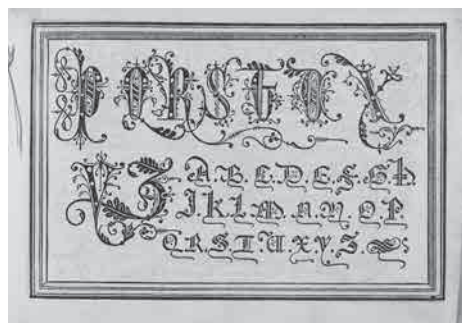 P Q R S T V X
Y Z A.B.C.D.E.F.G.H.
I K L M.N.N.O.P.
Q.R.S.T.U.X.Y.Z.